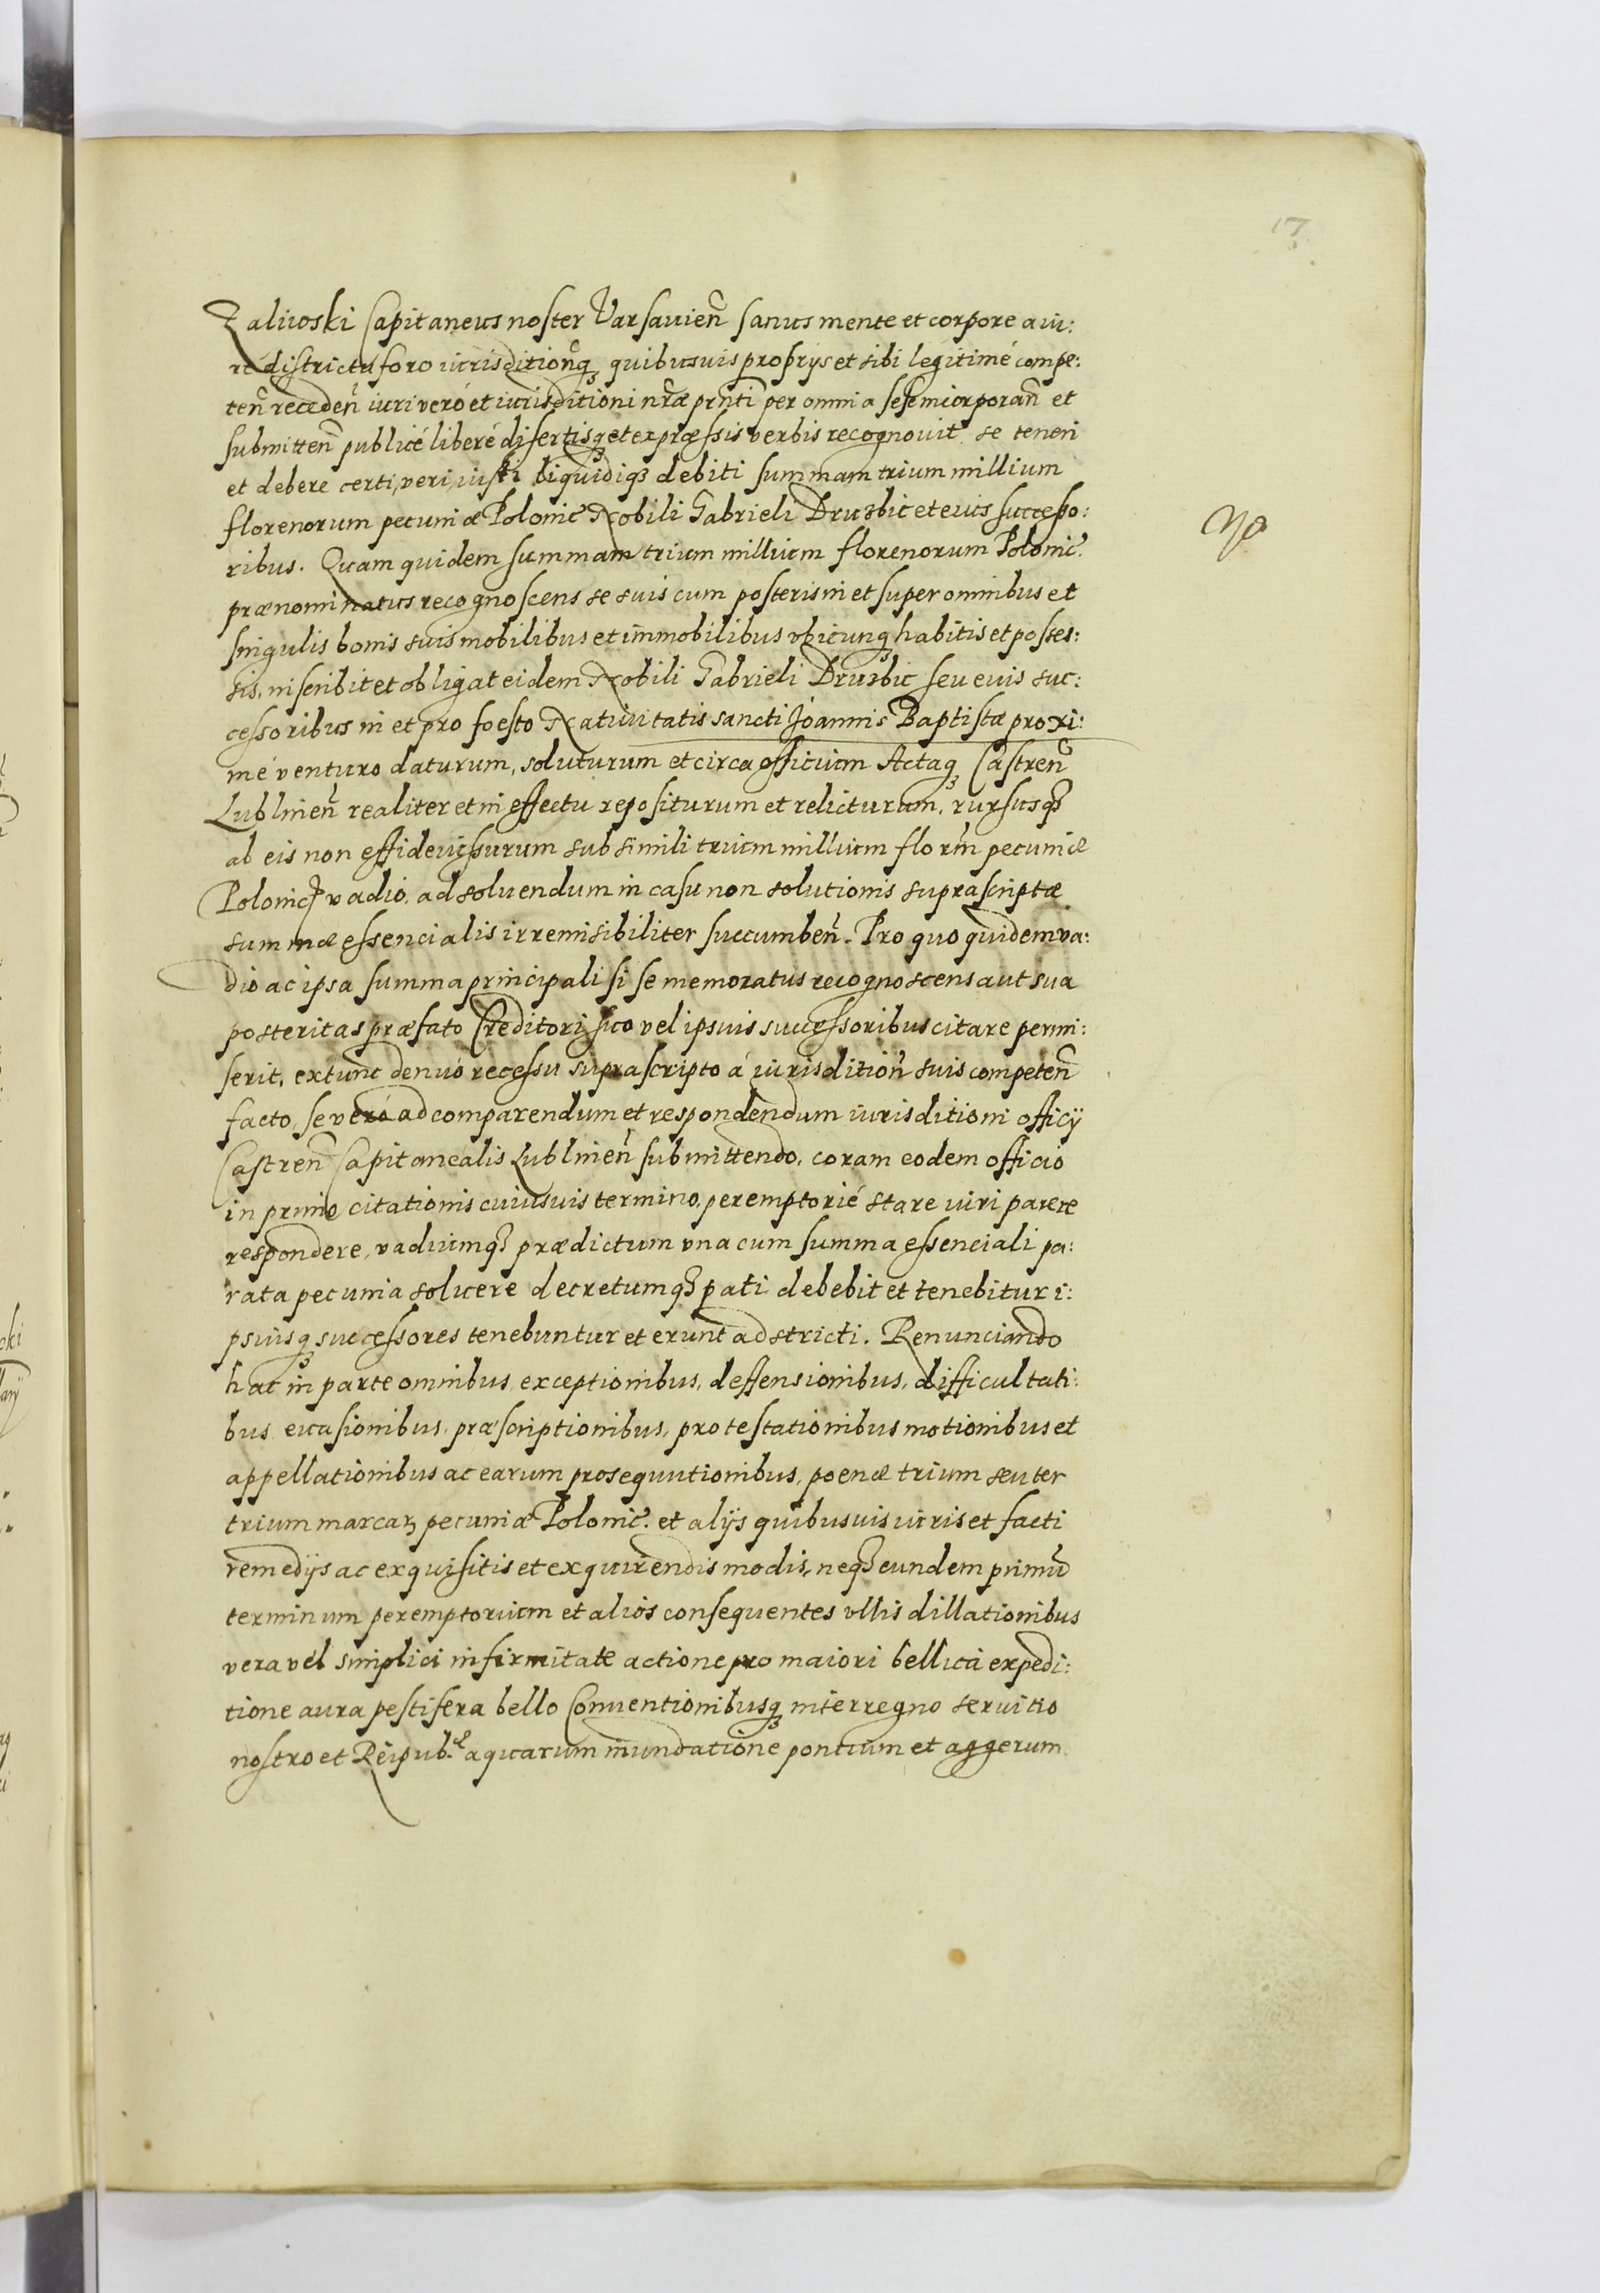 17
Zaliwoski Capitaneus noster Varsauien̄ sanus mente et corpore a iu:
re districtu foro iurisditionq₃ quibusuis proprijs et sibi legitimé compe:
ten̄ receden̄ iuri veró et iurisditioni nr̄æ prn̄ti per omnia sese incorporan̄ et
submitten̄ publicé liberé disertisq₃ et expræssis verbis recognouit se teneri
et debere certi, veri, iusti liquidiq₃ debiti summam trium millium
florenorum pecuniæ Polonic̄ Nobili Gabrieli Druzbic et eius successo:
ribus. Quam quidem summam trium millium florenorum Polonic̄.
prænominatus recognoscens se suis cum posteris in et super omnibus et
singulis bonis suis mobilibus et immobilibus vbicunq₃ habitis et posses:
sis, inscribit et obligat eidem Nobili Gabrieli Druzbic seu euis suc:
cessoribus in et pro foesto Natiuitatis sancti Joannis Baptistæ proxi:
mé venturo daturum, soluturum et circa officium Actaq₃ Castren̄
Lublinen̄ realiter et in effectu repositurum et relicturum, rursusq₃
ab eis non effideiussurum sub simili trium millium florn̄ pecuniæ
Polonic̄ vadio, ad soluendum in casu non solutionis suprascriptæ
summæ essencialis irremisibiliter succumben̄. Pro quo quidem va:
dio ac ipsa summa principali si se memoratus recognoscens aut sua
posteritas præfato Creditori suo vel ipsuis successoribus citare permi:
serit, extunc denuó recessu suprascripto á iurisdition̄ suis competen̄
facto, se veró ad comparendum et respondendum iurisditioni officij
Castren̄ Capitanealis Lublinen̄ submittendo, coram eodem officio
in primo citationis cuiusuis termino, peremptorié stare iuri parere
respondere, vadiumq₃ prædictum vna cum summa essenciali pa:
rata pecunia soluere decretumq₃ pati debebit et tenebitur i:
psiusq₃ successores tenebuntur et erunt adstricti. Renunciando
hac in parte omnibus exceptionibus, deffensionibus, difficultati:
bus euasionibus, præscriptionibus, protestationibus motionibus et
appellationibus ac earum prosequutionibus, poenæ trium seu ter
trium marcaꝝ pecuniæ Polonic̄. et alijs quibusuis iuris et facti
remedijs ac exquisitis et exquirendis modis, neq₃ eundem primū
terminum peremptorium et alios consequentes vllis dillationibus
vera vel simplici infirmitate actione pro maiori bellica expedi:
tione aura pestifera bello Conuentionibusq₃ interregno seruitio
nostro et Reipub.ᵉ aquarum inundatione pontium et aggerum